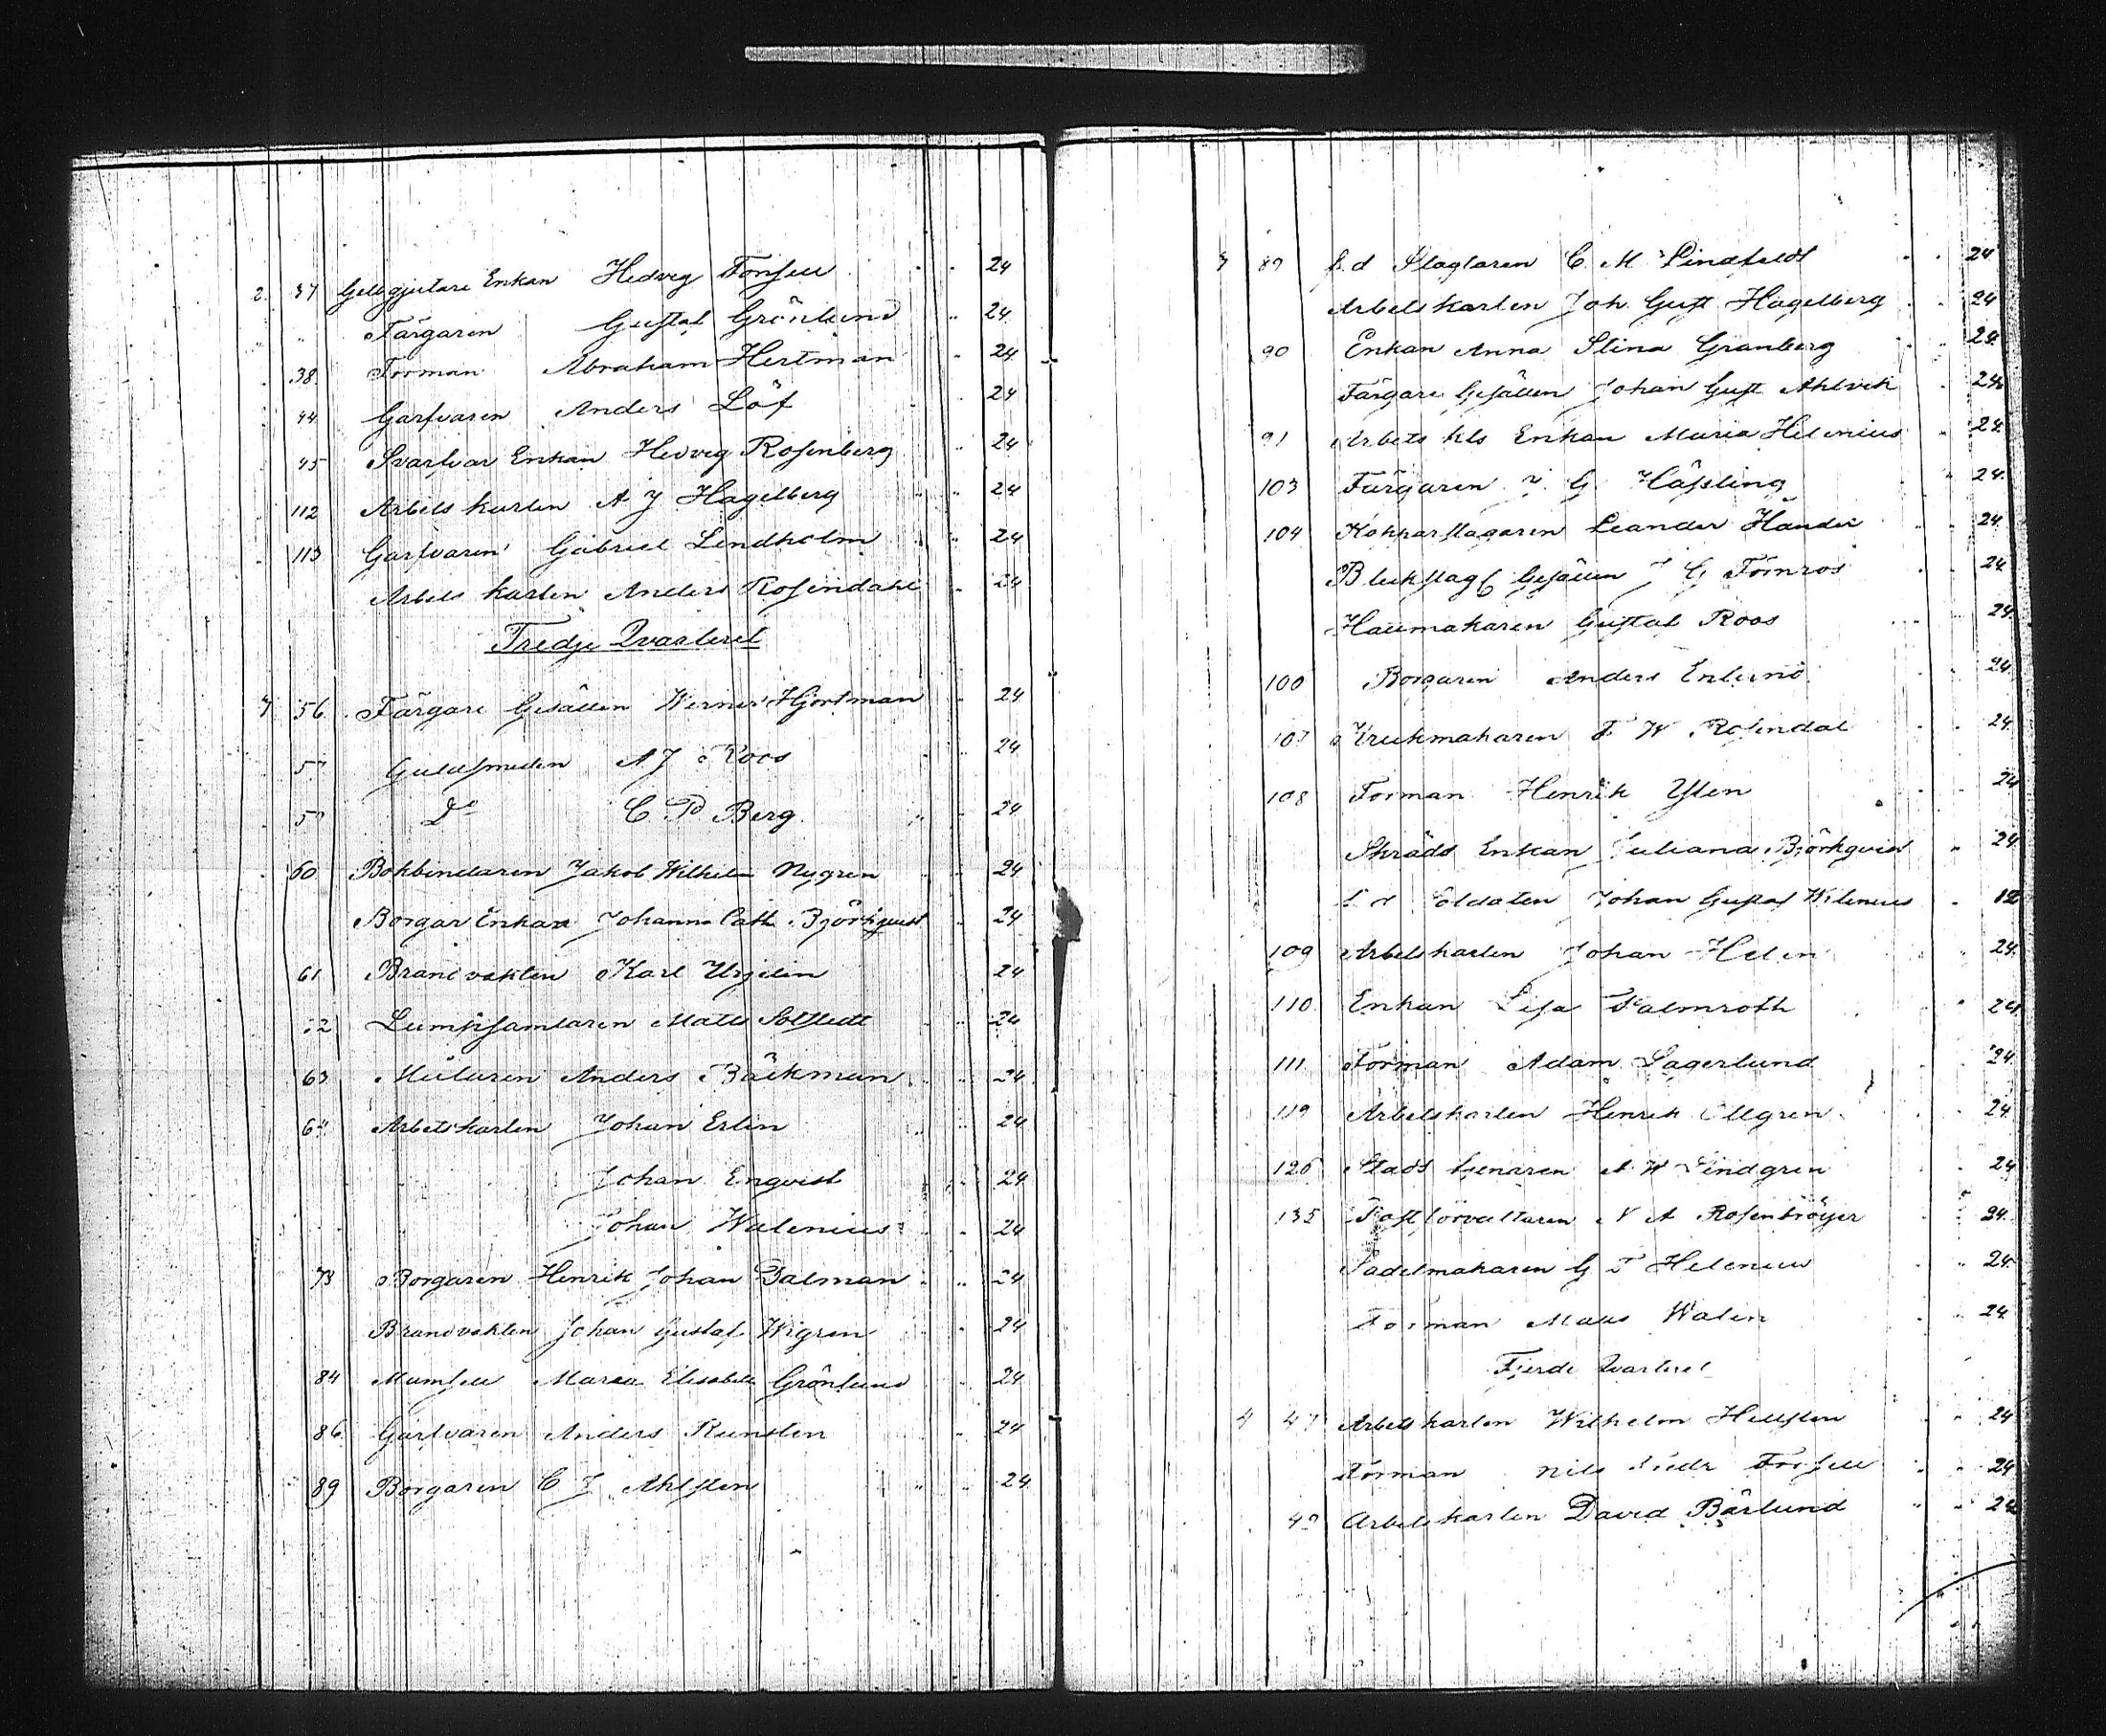 2. 37 Gellbgjutare Enkan Hedvig Forsell 24
" " Färgaren Gustaf Grönlund 24
38. Forman Abraham Hertman 24
44 Garfvaren Anders Löf 24
45 Svarfvar Enkan Hedvig Rosenberg 24
112 Arbets karlen A J Hagelberg 24
113 Garfvaren Gabriel Lindholm 24
Arbets karlen Anders Rosendahl 24
Tredje Qvarteret
3 56 Färgare Gesällen Verner Hjortman 24
57 Guldsmeden A J Roos 24
57 Do C P Berg. 24
60 Bokbindaren Jakob Wilhelm Nygren 24
Borgar Enkan Johanna Cath. Björkqvist 24
61 Brandvakten Karl 24
62 Lumpsamlaren Matts Solstedt 24
63 Målaren Anders Bäckman 24
64 Arbetskarlen Johan Erlin 24
Johan Enqvist 24
Johan Walenius 24
73 Borgaren Henrik Johan Dalman 24
Brandvakten Johan Gustaf Wigren 24
84 Mamsell Maria Elisabeth Grönlund 24
86 Garfvaren Anders Runsten 24
89 Borgaren C J Ahlsten 24
3 89 f.d Slagtaren C. M. Lindfeldt 24
Arbetskarlen Joh. Gust Hagelberg 24
90 Enkan Anna Stina Granberg 24
Färgare Gesällen Johan Gust Ahlvik 24
91 Arbets kls Enkan Maria Helenius 24
103 Färgaren J. G. Hässling 24
104 Kopparslagaren Leander Hander 24
Blekslag Gesällen J G Törnros 24
Gustaf Roos 24
100 Borgaren Anders Enlund 24
107 Krukmakaren F W Rosendal 24
108 Forman Henrik Ylen 24
Skrädd Enkan Juliana Björkqvist 24
f d Soldaten Johan Gustaf Wilenius 12
109 Arbetskarlen Johan Helen 24
110 Enkan Lisa Palmroth 24
111 Forman Adam Lagerlund 24
119 Arbetskarlen Henrik Ollgren 24
126 Stads tjenaren A W Lindgren 24
135 Postförvaltaren N A Rosenbröijer 24
Sadelmakaren G F Helenius 24
Forman Matts Walen 24
Fjerde Qvarteret
4 47 Arbetskarlen Wilhelm Hellsten 24
Forman Nils Fredr Forsell 24
Arbetskarlen David Bärlund 24